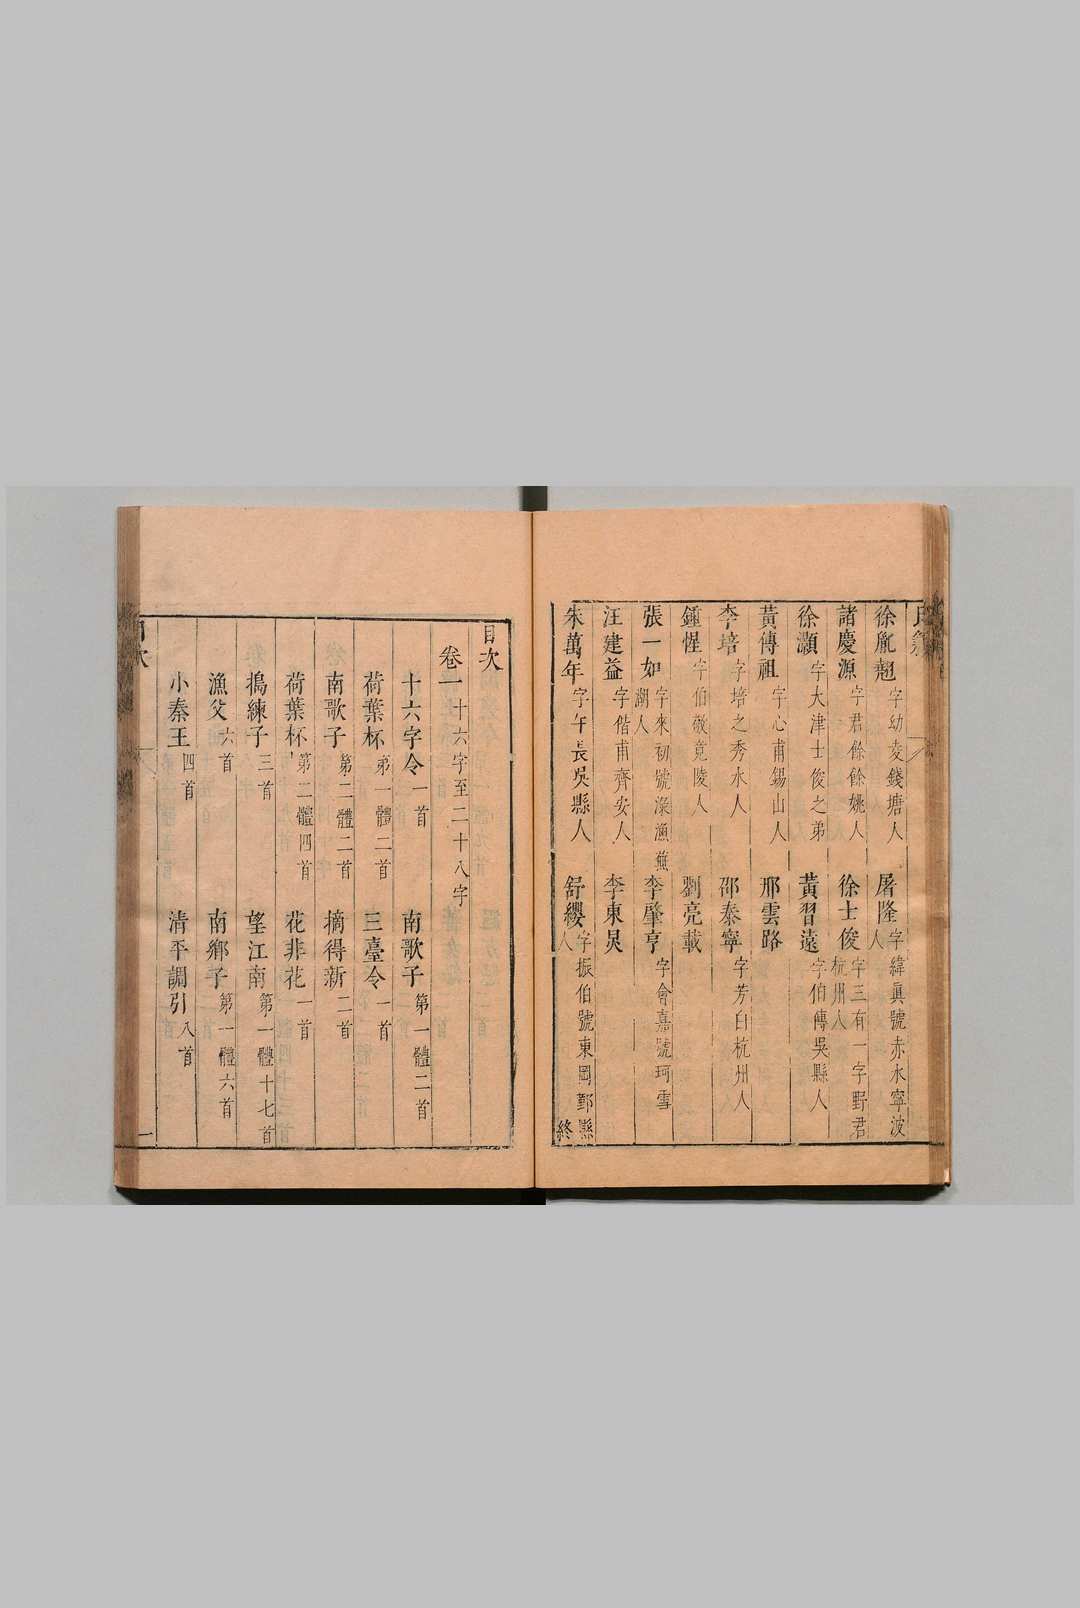 徐胤翹 字幼凌錢塘人 屠隆 字緯眞號赤水寧波人
諸慶源 字君餘餘姚人 徐士俊 字三有一字野君杭州人
徐灝 字大津士俊之弟 黃習遠 字伯傳吳縣人
黃傳祖 字心甫錫山人 邢雲路
李培 字培之秀水人 邵泰寧 字芳白杭州人
鍾惺 字伯敬竟陵人 劉亮載
張一如 字來初號漁蕪湖人 李肇亨 字會嘉號珂雪
汪建益 字偕甫齊安人 李東炅
朱萬年 字午長吳縣人 舒纓 字振伯號東岡鄞縣人 終
目次
卷一 十六字至二十八字
十六字令 一首 南歌子 第一體二首
荷葉杯 第一體二首 三臺令 一首
南歌子 第二體二首 摘得新 二首
荷葉杯 第二體四首 花非花 一首
搗練子 三首 望江南 第一體十七首
漁父 六首 南鄉子 第一體六首
小秦王 四首 清平調引 八首
目次 一